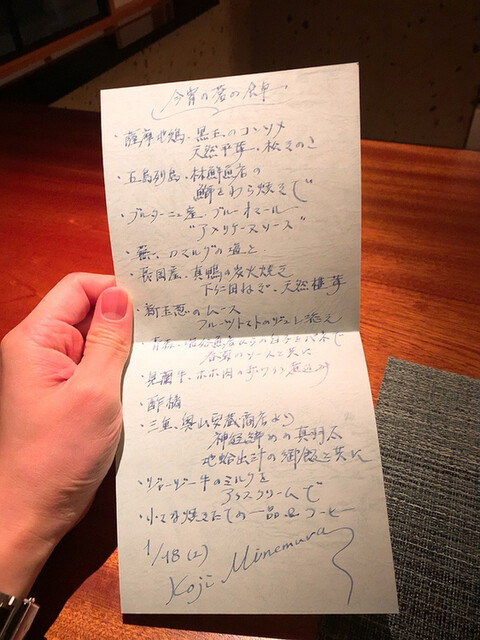 今宵の蒼の献立
・薩摩地鶏、黒王のコンソメ
天然平茸、松きのこ
・五島列島、林鮮魚店の
鰤をわら焼きで
・ブルターニュ産、ブルーオマール
"アメリケーヌソース"
・蕪、オマルグの
・長国産、真鴨の炭火焼き
下仁田ねぎ、天然椎茸
・新玉葱のムース
フルーツトマトのジュレ添え
・青森、
春菊のソースと共に
・黒蘭牛、ホホ肉の赤ワイン煮込み
・酢橘
・三重、奥山安蔵商店より
神経締めの真羽太
地蛤出汁の御飯と共に
・ジャージー牛のミルクを
アイスクリームで
・小さな焼きたての一品&コーヒー
1/18 (土)
Koji Minemura